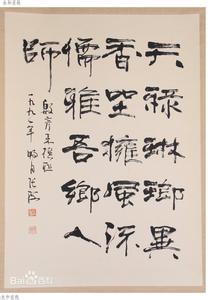 天祿琳瑯異
香坐擁風流
儒雅吾鄉人
師
一九九一年
Bai百科